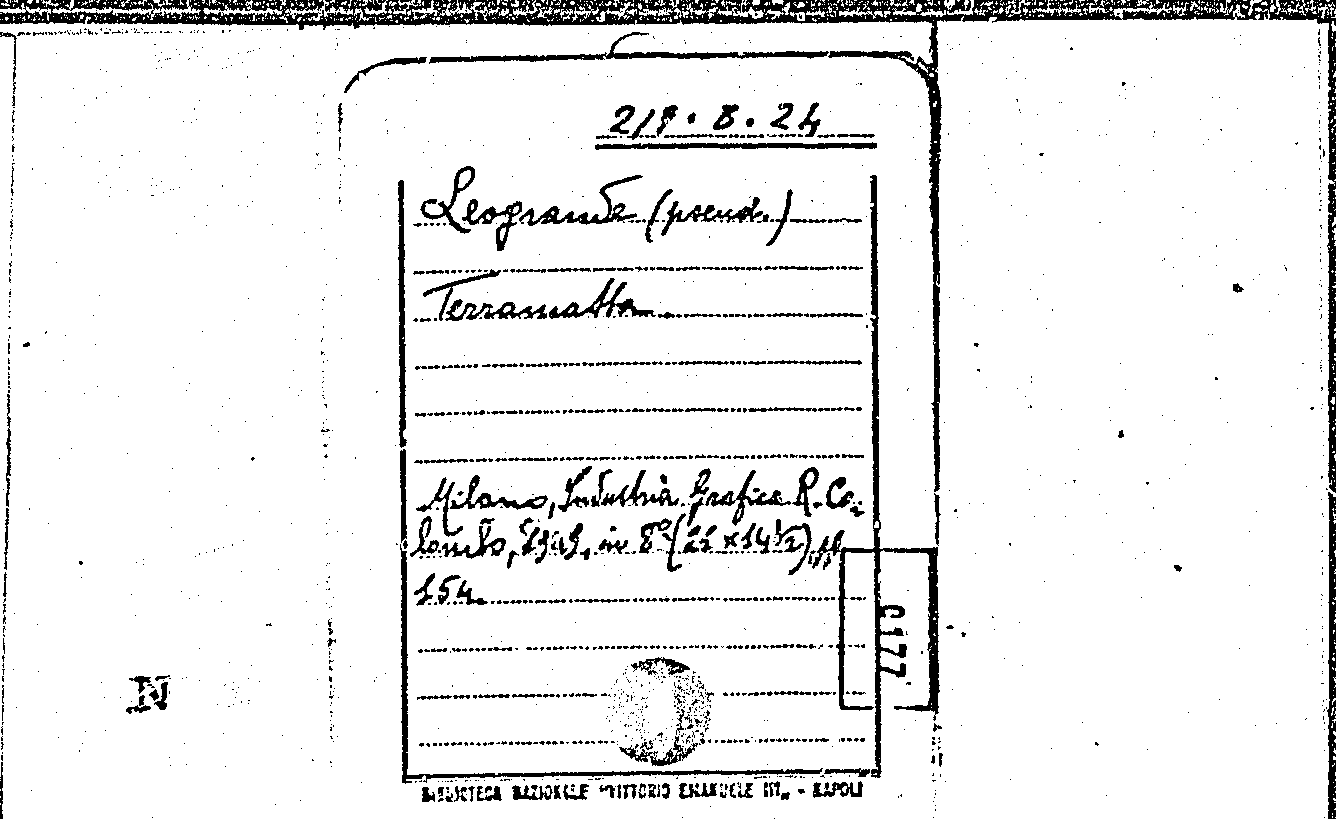 219. B. 24
Leogrande (pseud.)
Terramatta.
Milano, Industria Grafica R. Co-
lombo, 1949, in 8° (22 x 14 1/2), pp.
154.
0177
N
BIBLIOTECA NAZIONALE "VITTORIO EMANUELE III" - NAPOLI